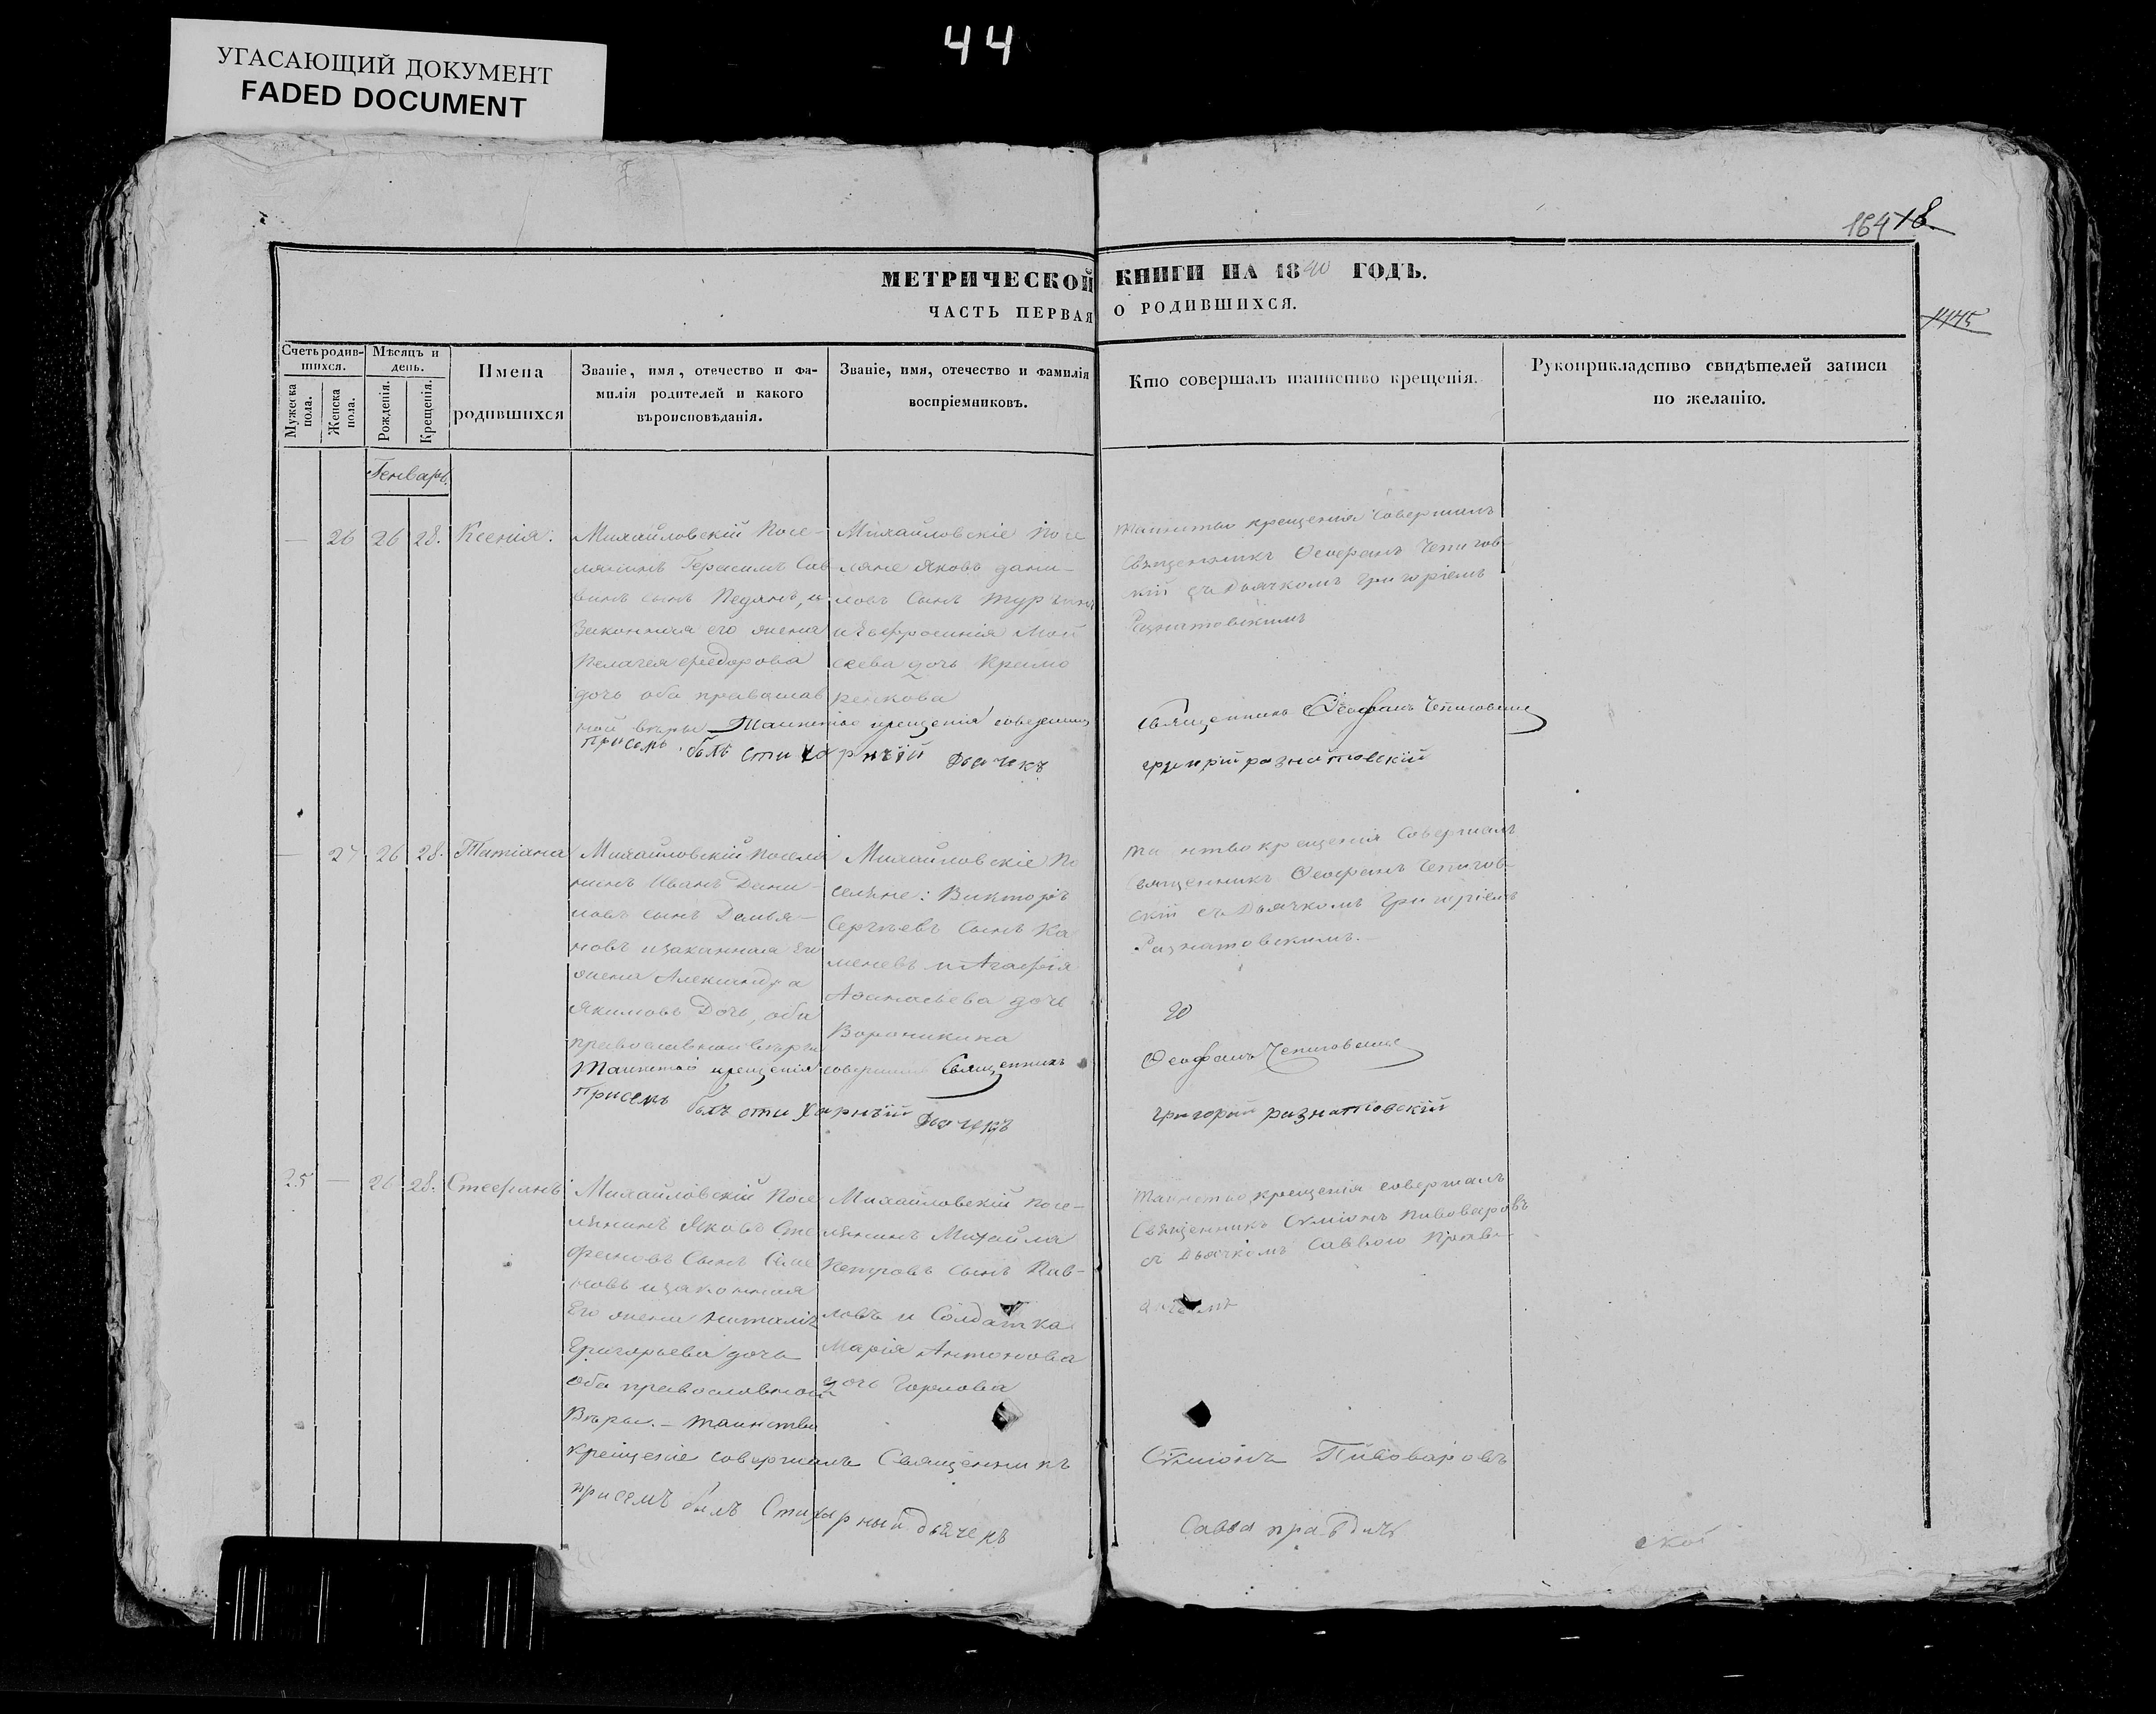 44
УГАСАЮЩИЙ ДОКУМЕНТ
FADED DOCUMENT
164 18
1175
МЕТРИЧЕСКОЙ КНИГИ НА 1840 ГОДЪ.
ЧАСТЬ ПЕРВАЯ О РОДИВШИХСЯ.
Счетъ родив-
шихся.
Мужеска
пола.
Женска
пола.
Мѣсяцъ и
день.
Рожденія.
Крещенія.
Имена
родившихся
Званіе, имя, отечество и фа-
милія родителей и какого
вѣроисповѣданія.
Званіе, имя, отечество и фамилія
воспріемниковъ.
Кто совершалъ таинство крещенія.
Рукоприкладство свидѣтелей записи
по желанію.
Генварь.
— 26 26 28. Ксенія.
Михайловскій Посе-
лянинъ Герасимъ Сав-
винъ сынъ Педянъ, и
Законная его жена
Пелагея Федорова
дочь оба православ
ной вѣры Таинство крещенія совершилъ
присемъ былъ стихарный Дьячекъ
Михайловскіе Посе
ляне Яковъ Дани-
ловъ Сынъ
и Евфросинія Мой
сеева дочь
ренкова
Таинство крещенія Совершилъ
Священникъ Ѳеофанъ Чепигов-
скій съ Дьячкомъ Григоріемъ
Разнатовскимъ
Священникъ Ѳеофанъ Чепиговскій
григорій разнатовскій
— 27 26 28. Татіана
Михайловскій Поселя
нинъ Иванъ Дани-
ловъ сынъ Демья-
новъ изаконная Его
жена Александра
Якимовъ Дочь, оба
православной вѣры
Таинство крещенія совершилъ Священникъ
Присемъ былъ стихарный Дьячекъ
Михайловскіе По
селяне: Викторъ
Сергѣевъ Сынъ Ка
меневъ и Агафія
Афанасьева дочь
Вороникина
Священникъ Ѳеофанъ Чепигов-
скій съ Дьячкомъ Григоріемъ
Разнатовскимъ.
Ѳеофанъ Чепиговскій
григорій разнатовскій
25 — 26 28. Стефанъ
Михайловскій Посе
лянинъ Яковъ Сте
фановъ Сынъ
новъ изаконная
Его жена Наталія
Григорьева дочь
Оба православной
Вѣры. — Таинство
крещеніе совершалъ Священникъ
присемъ былъ Стихарный дьячекъ
Михайловскій посе-
лянинъ Михайла
Петровъ сынъ Пав-
ловъ и Солдатка
Марія Антонова
дочь Горлова
Таинство крещенія совершалъ
Священникъ Сѵміонъ Пивоваровъ
съ Дьячкомъ Саввою Правди-
Сѵміонъ Пивоваровъ
Савва правдичъ